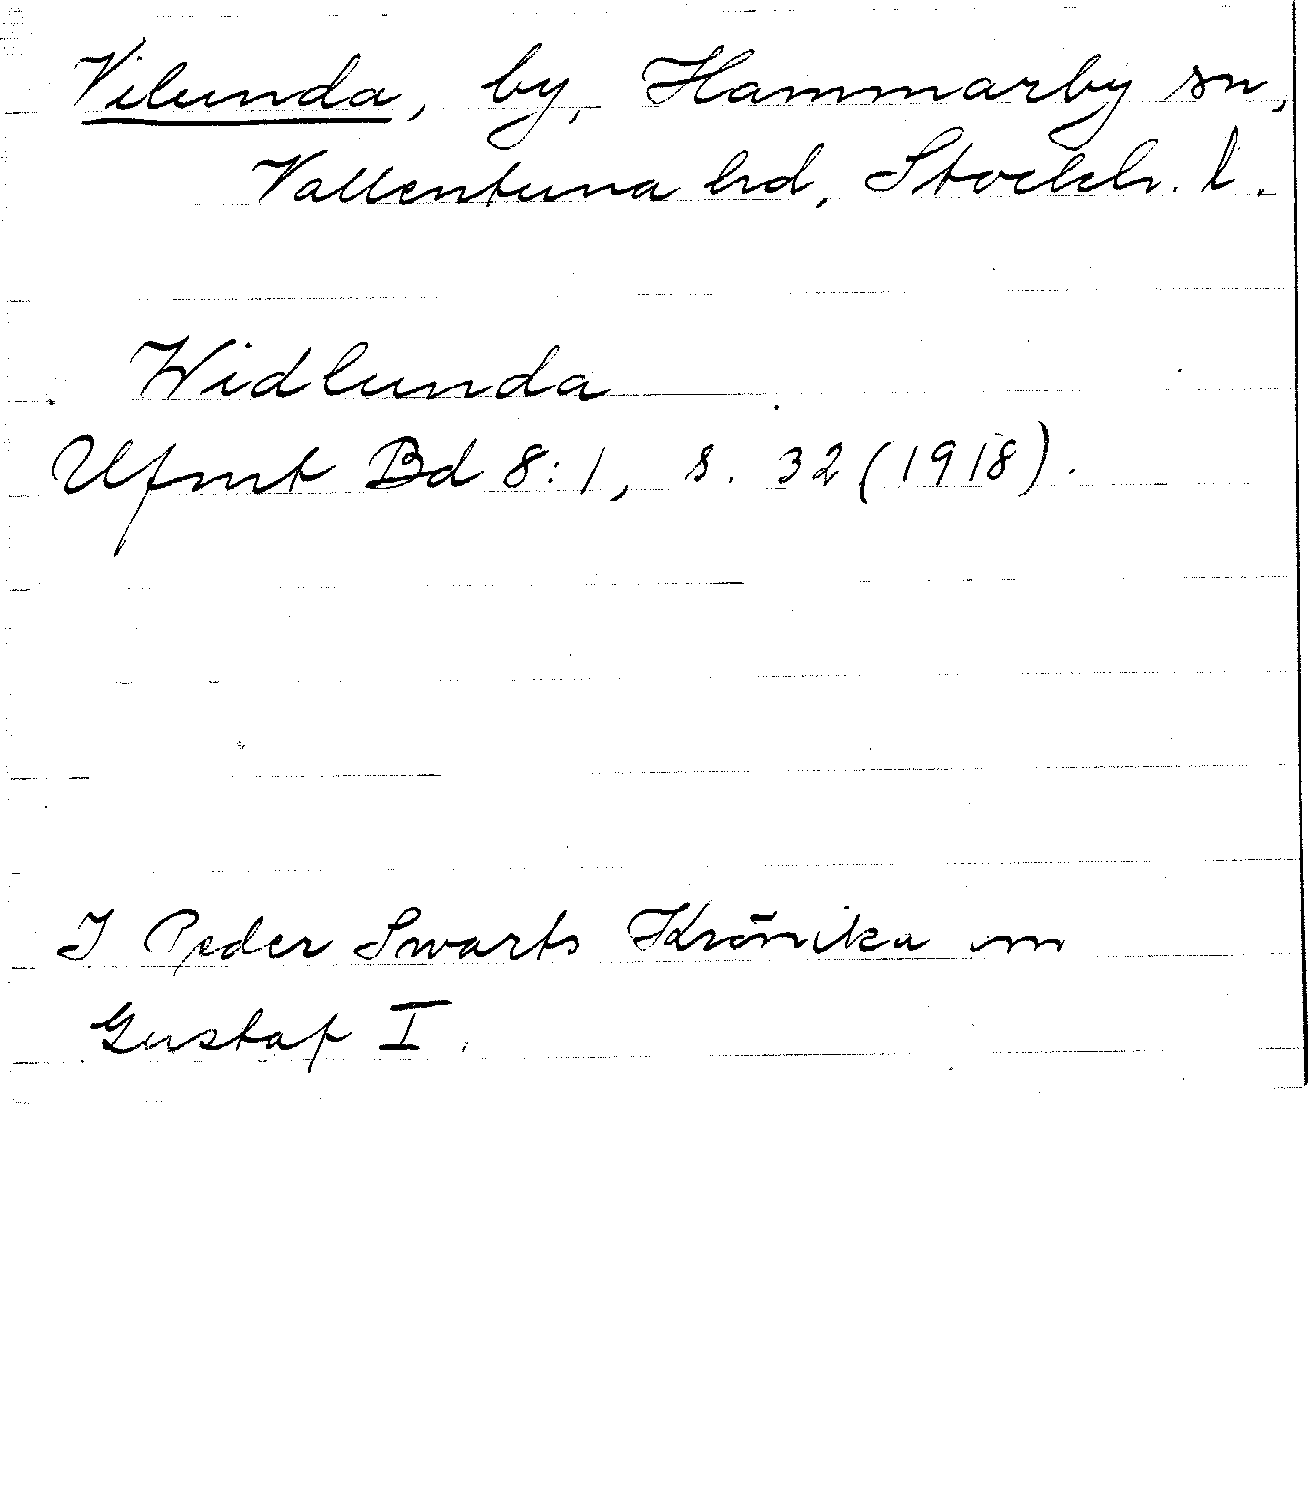 Vilunda, by, Hammarby sn,
Vallentuna hd, Stockh. l.
Widlunda
Ufmt Bd 8:1, s. 32 (1918).
I Peder Swarts Krönika om
Gustaf I.